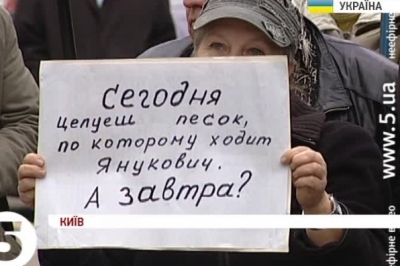 УКРАЇНА
Сегодня
целуеш песок,
по которому ходит
Янукович.
А завтра?
КИЇВ
5
www.5.ua